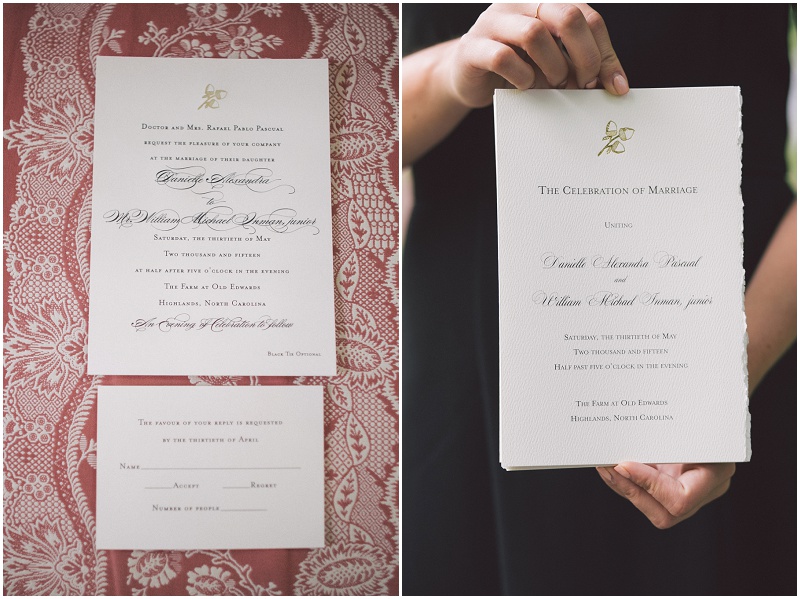 Doctor and Mrs. Rafael Pablo Pascual
request the pleasure of your company
at the marriage of their daughter
Danielle Alexandra
to
Mr. William Michael Inman, junior
Saturday, the thirtieth of May
Two thousand and fifteen
at half after five o'clock in the evening
The Farm at Old Edwards
Highlands, North Carolina
An Evening of Celebration to follow
Black Tie Optional
The favour of your reply is requested
by the thirtieth of April
Name
Accept Regret
Number of people
The Celebration of Marriage
Uniting
Danielle Alexandra Pascual
and
William Michael Inman, junior
Saturday, the thirtieth of May
Two thousand and fifteen
Half past five o'clock in the evening
The Farm at Old Edwards
Highlands, North Carolina